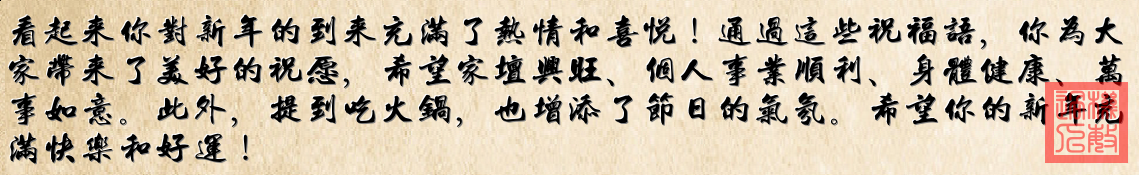 看起來你對新年的到來充滿了熱情和喜悅！通過這些祝福語，你為大
家帶來了美好的祝愿，希望家壇興旺、個人事業順利、身體健康、萬
事如意。此外，提到吃火鍋，也增添了節日的氣氛。希望你的新年充
滿快樂和好運！